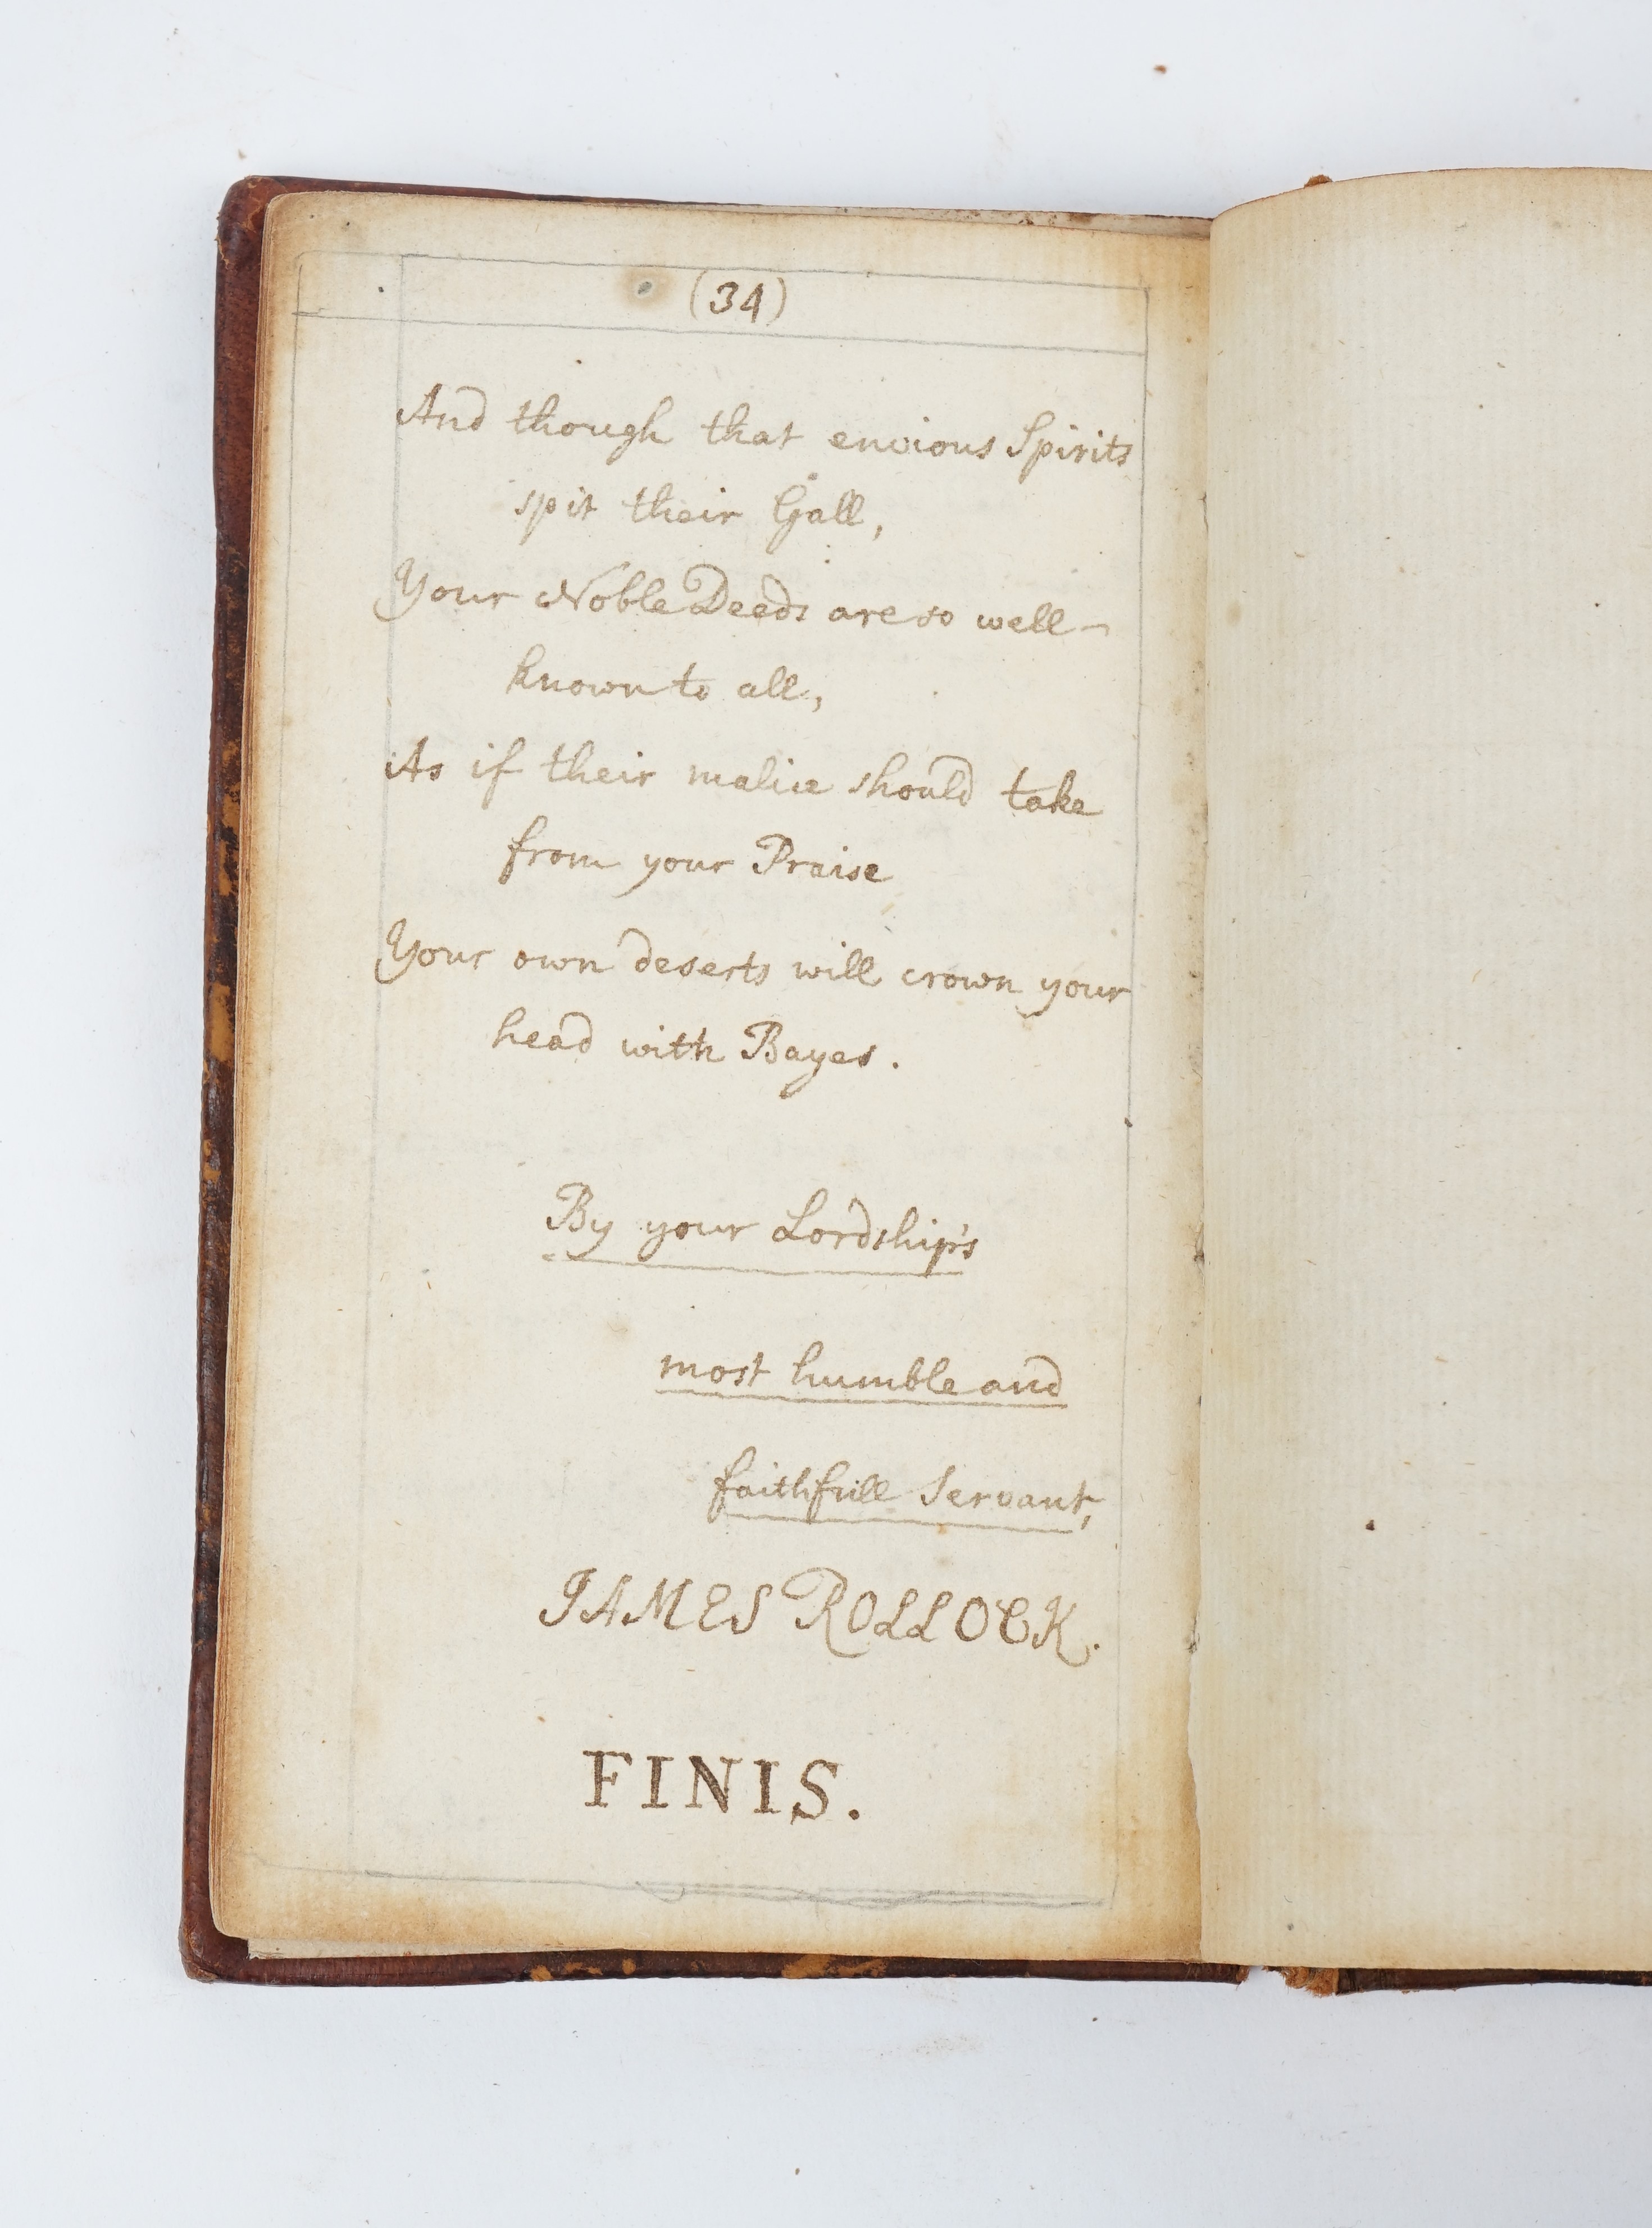 (34)
And though that envious Spirits
spit their Gall,
Your Noble Deeds are so well
known to all,
As if their malice should take
from your Praise
Your own deserts will crown your
head with Bayes.
By your Lordship's
most humble and
faithfull Servant,
JAMES ROLLOCK.
FINIS.